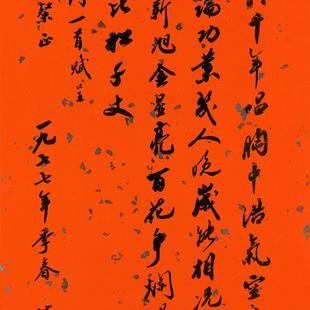 千年唱胸中浩氣
論功業幾人晚歲能相况
新旭金星亮百花争斓
比松千丈
一首賦呈
正
一九七七年季春